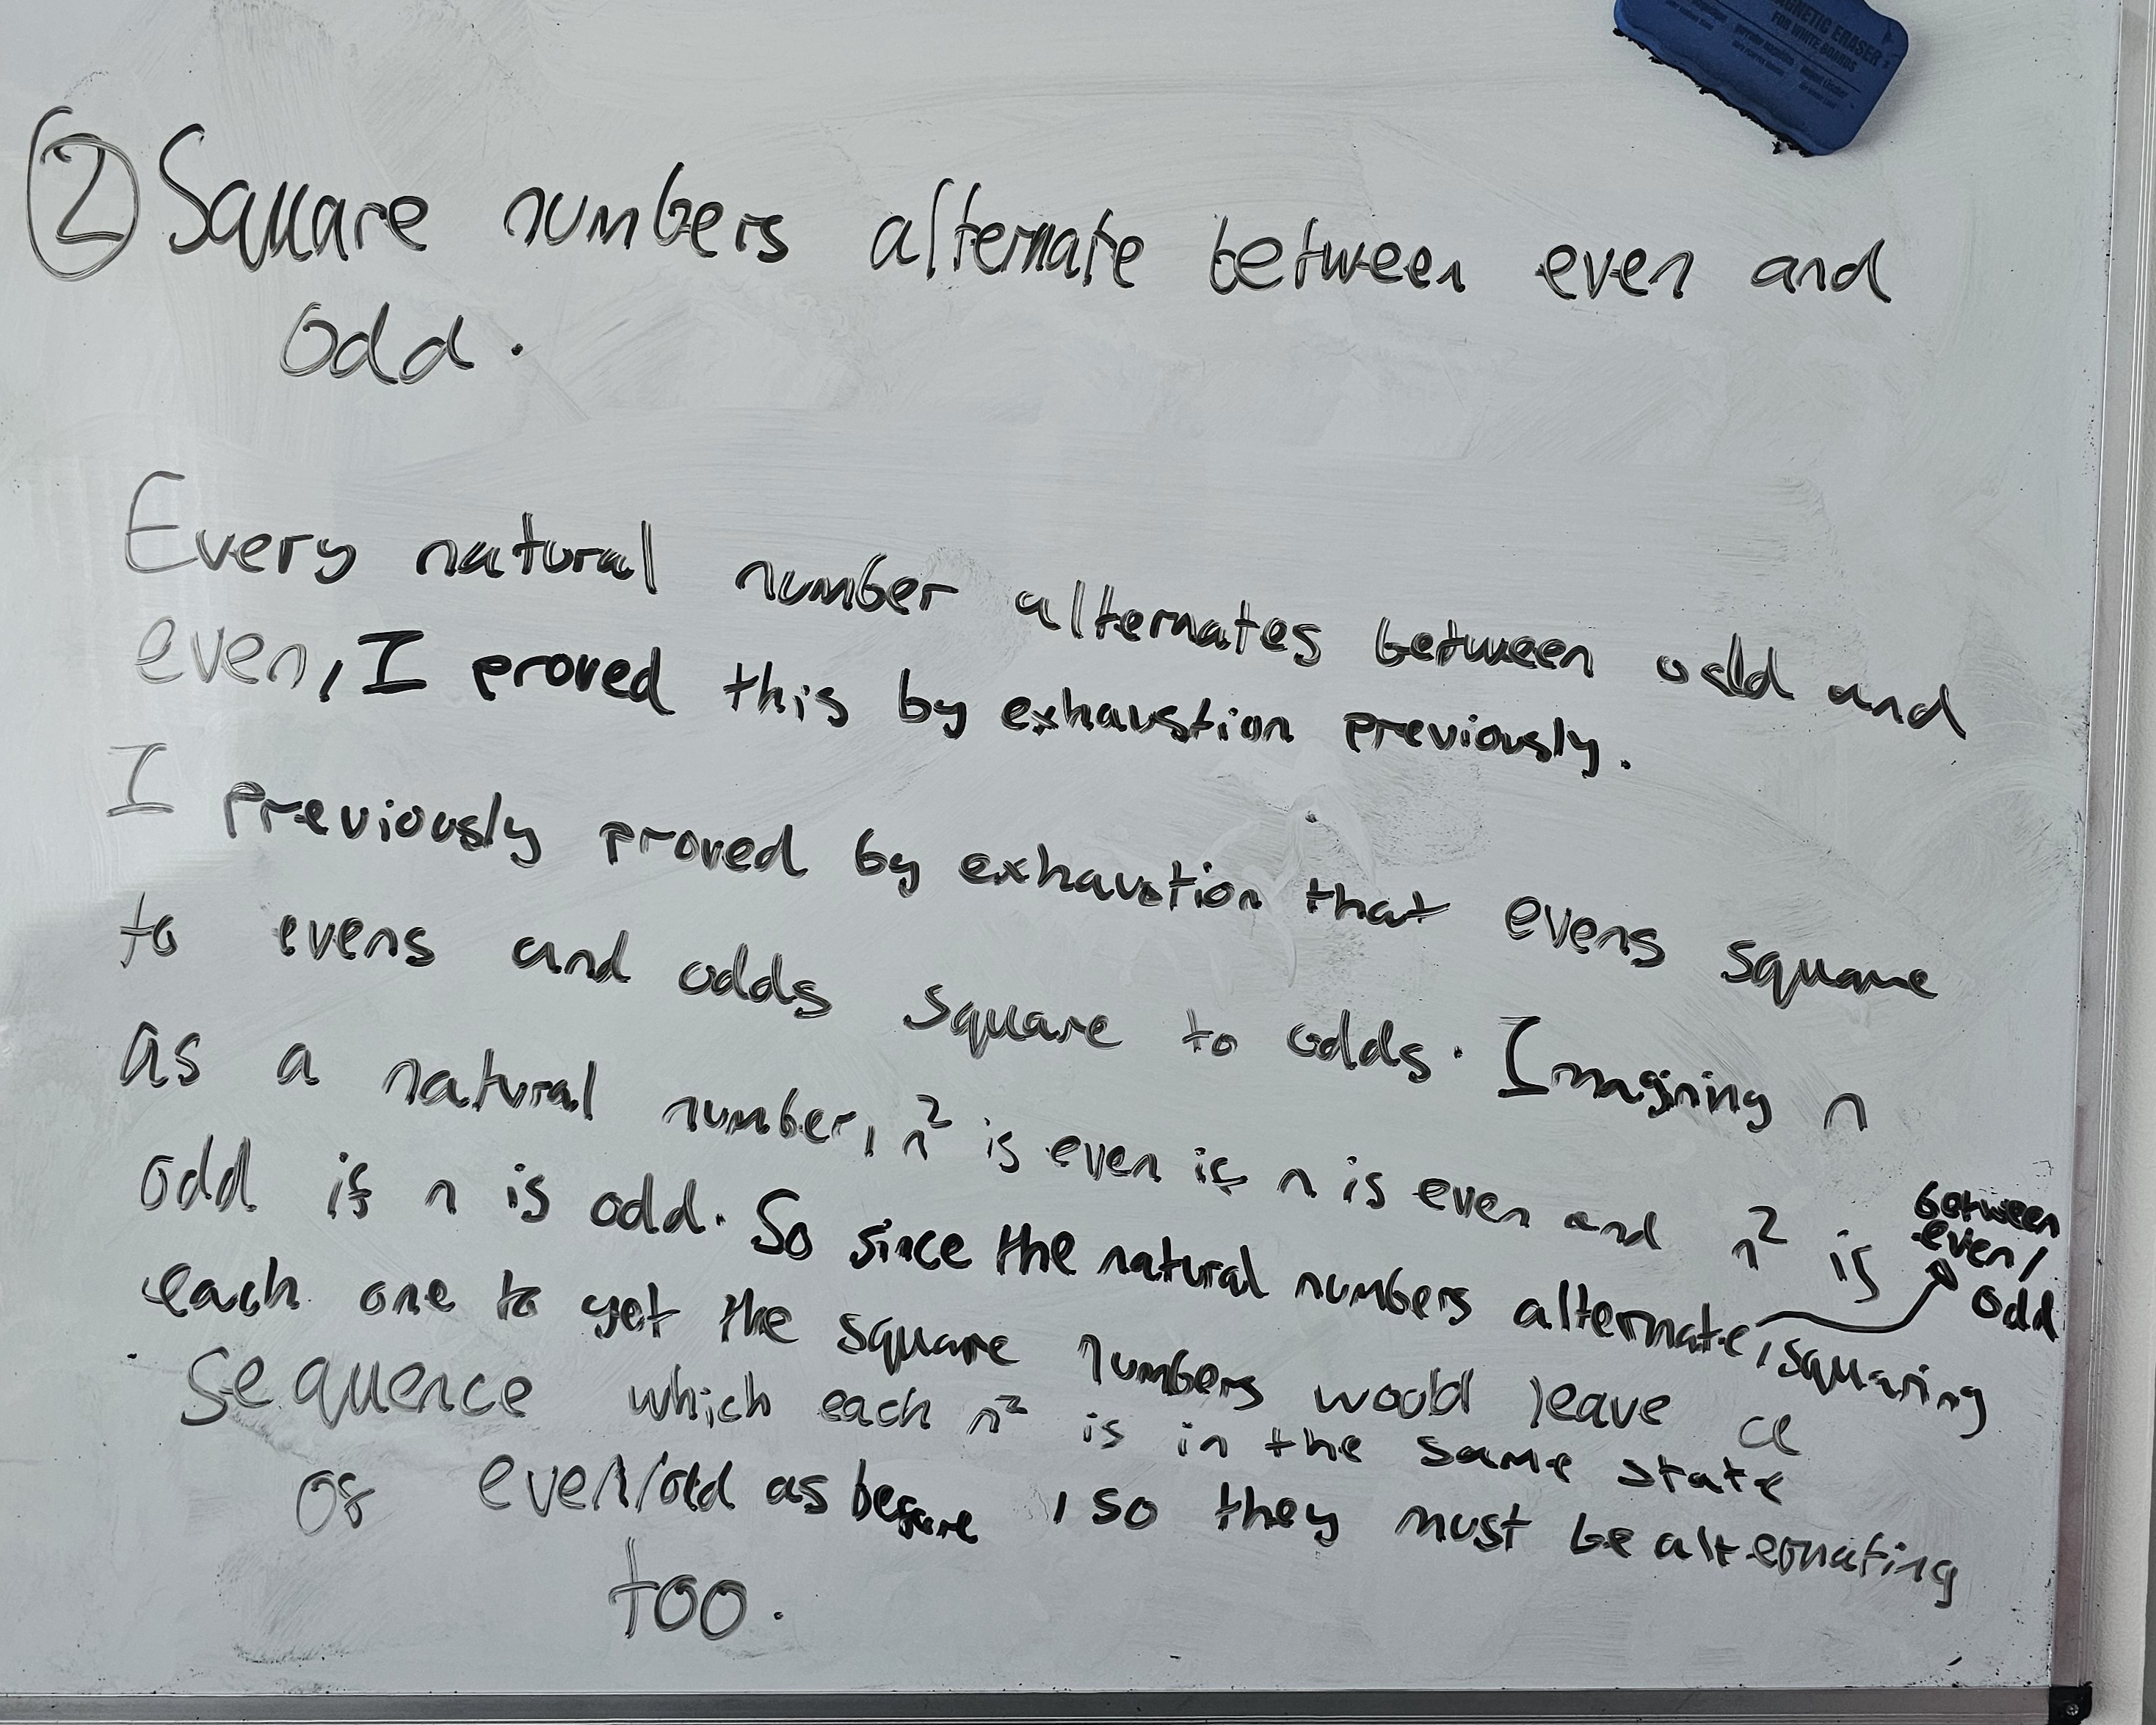 MAGNETIC ERASER
FOR WHITE BOARDS
② Square numbers alternate between even and
odd.
Every natural number alternates between odd and
even, I proved this by exhaustion previously.
I previously proved by exhaustion that evens square
to evens and odds square to odds. Imagining n
as a natural number, n² is even if n is even and n² is
odd if n is odd. So since the natural numbers alternate, squaring
between
even/
odd
each one to get the square numbers would leave a
sequence which each n² is in the same state
of even/odd as before, so they must be alternating
too.